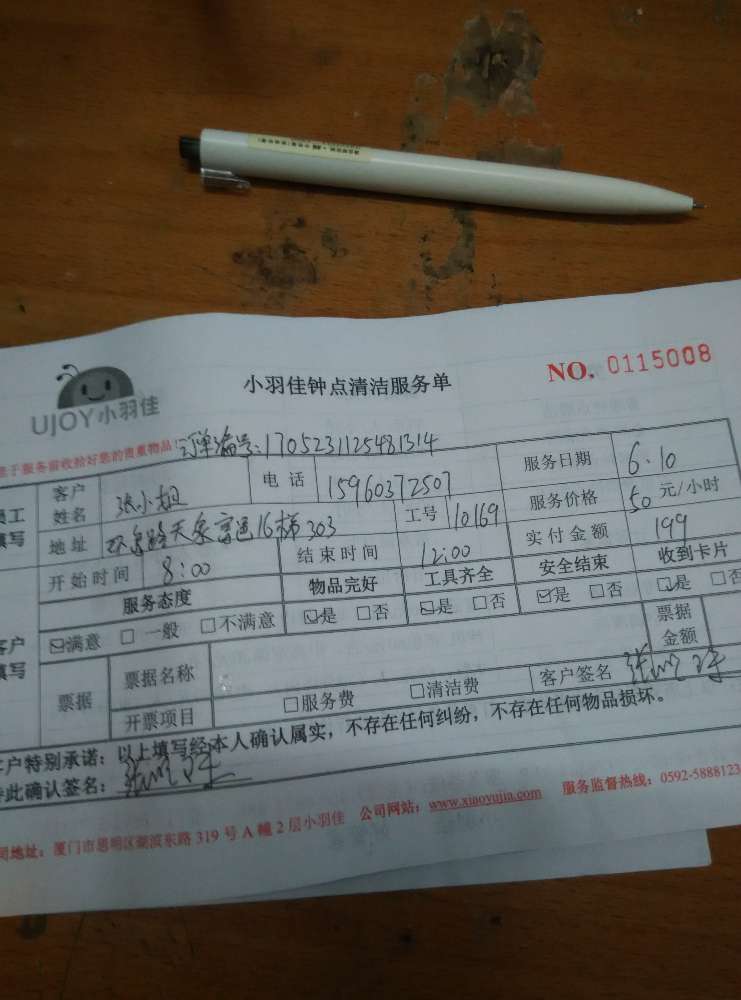 UJOY小羽佳
小羽佳钟点清洁服务单
NO. 0115008
于服务前收拾好您的贵重物品!
订单编号:1705231125481314
员工填写 客户姓名 张小姐 电话 15960372507 服务日期 6.10
地址 天泉富邑16梯303 工号 10169 服务价格 50 元/小时
开始时间 8:00 结束时间 12:00 实付金额 199
服务态度 物品完好 工具齐全 安全结束 收到卡片
客户填写 ☑满意 □一般 □不满意 ☑是 □否 ☑是 □否 ☑是 □否 ☑是 □否
票据 票据名称 票据金额
开票项目 □服务费 □清洁费 客户签名
客户特别承诺:以上填写经本人确认属实,不存在任何纠纷,不存在任何物品损坏。
特此确认签名:
司地址:厦门市思明区湖滨东路 319 号 A 幢 2 层小羽佳 公司网站:www.xiaoyujia.com 服务监督热线:0592-5888123